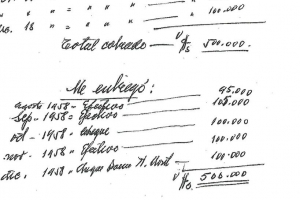 " " " " " 100.000
Total cobrado — $ 500.000.
Me entregó:
agosto 1958 - Efectivo 95.000
sep. - 1958 - Efectivo 105.000
oct - 1958 - cheque 100.000
nov. - 1958 - Efectivo 100.000
dic. 1958 - cheque Banco 100.000
$ 500.000